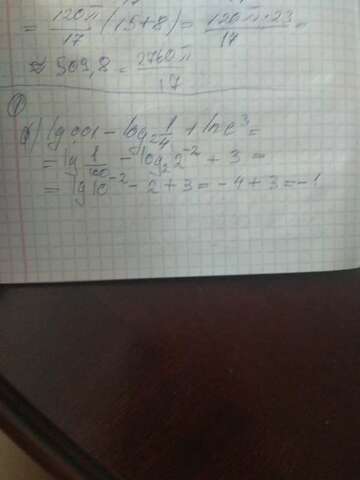 = 120π/17 (15+8) = 120π·23/17 =
≈ 509,8 = 2760π/17
①
) lg 0,01 - log₂ 1/4 + ln e³ =
= lg 1/100 - log₂ 2⁻² + 3 =
= lg 10⁻² - 2 + 3 = -4 + 3 = -1